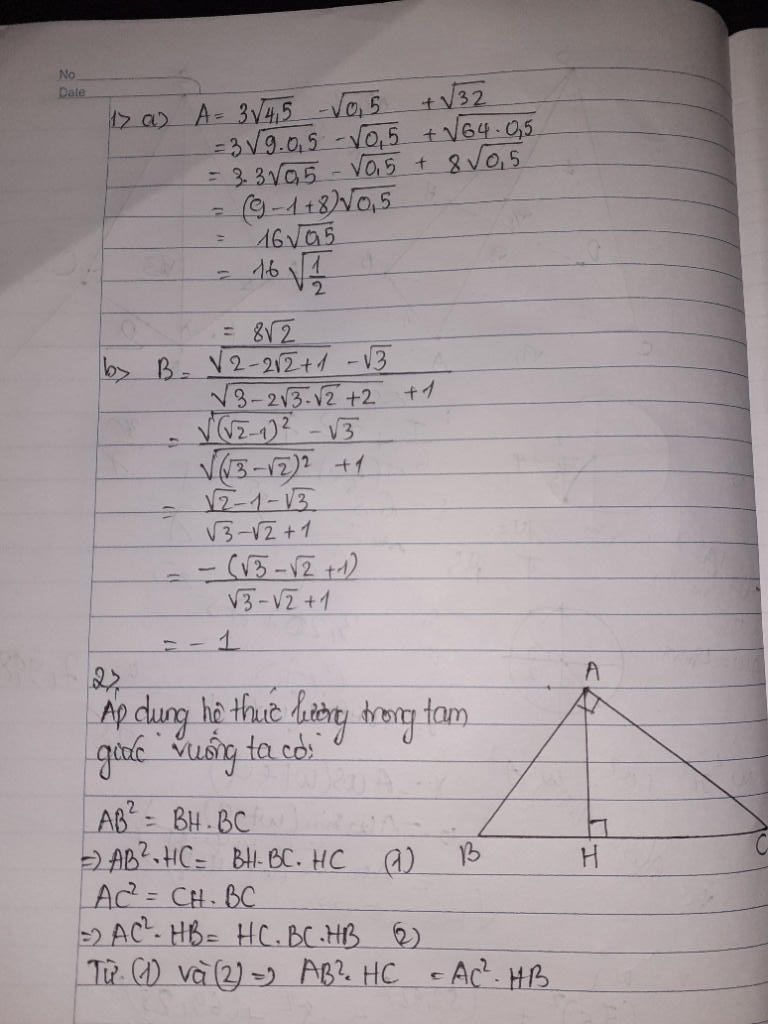 No
Date
1> a> A = 3√4,5 - √0,5 + √32
= 3√9.0,5 - √0,5 + √64.0,5
= 3.3√0,5 - √0,5 + 8√0,5
= (9-1+8)√0,5
= 16√0,5
= 16√(1/2)
= 8√2
b> B = (√(2-2√2+1) - √3)/(√(3-2√3.√2+2) + 1)
= (√((√2-1)²) - √3)/(√((√3-√2)²) + 1)
= (√2-1-√3)/(√3-√2+1)
= (-(√3-√2+1))/(√3-√2+1)
= -1
2>
Áp dụng hệ thức lượng trong tam
giác vuông ta có:
AB² = BH.BC
=> AB².HC = BH.BC.HC (1)
AC² = CH.BC
=> AC².HB = HC.BC.HB (2)
Từ (1) và (2) => AB².HC = AC².HB
A
B
H
C